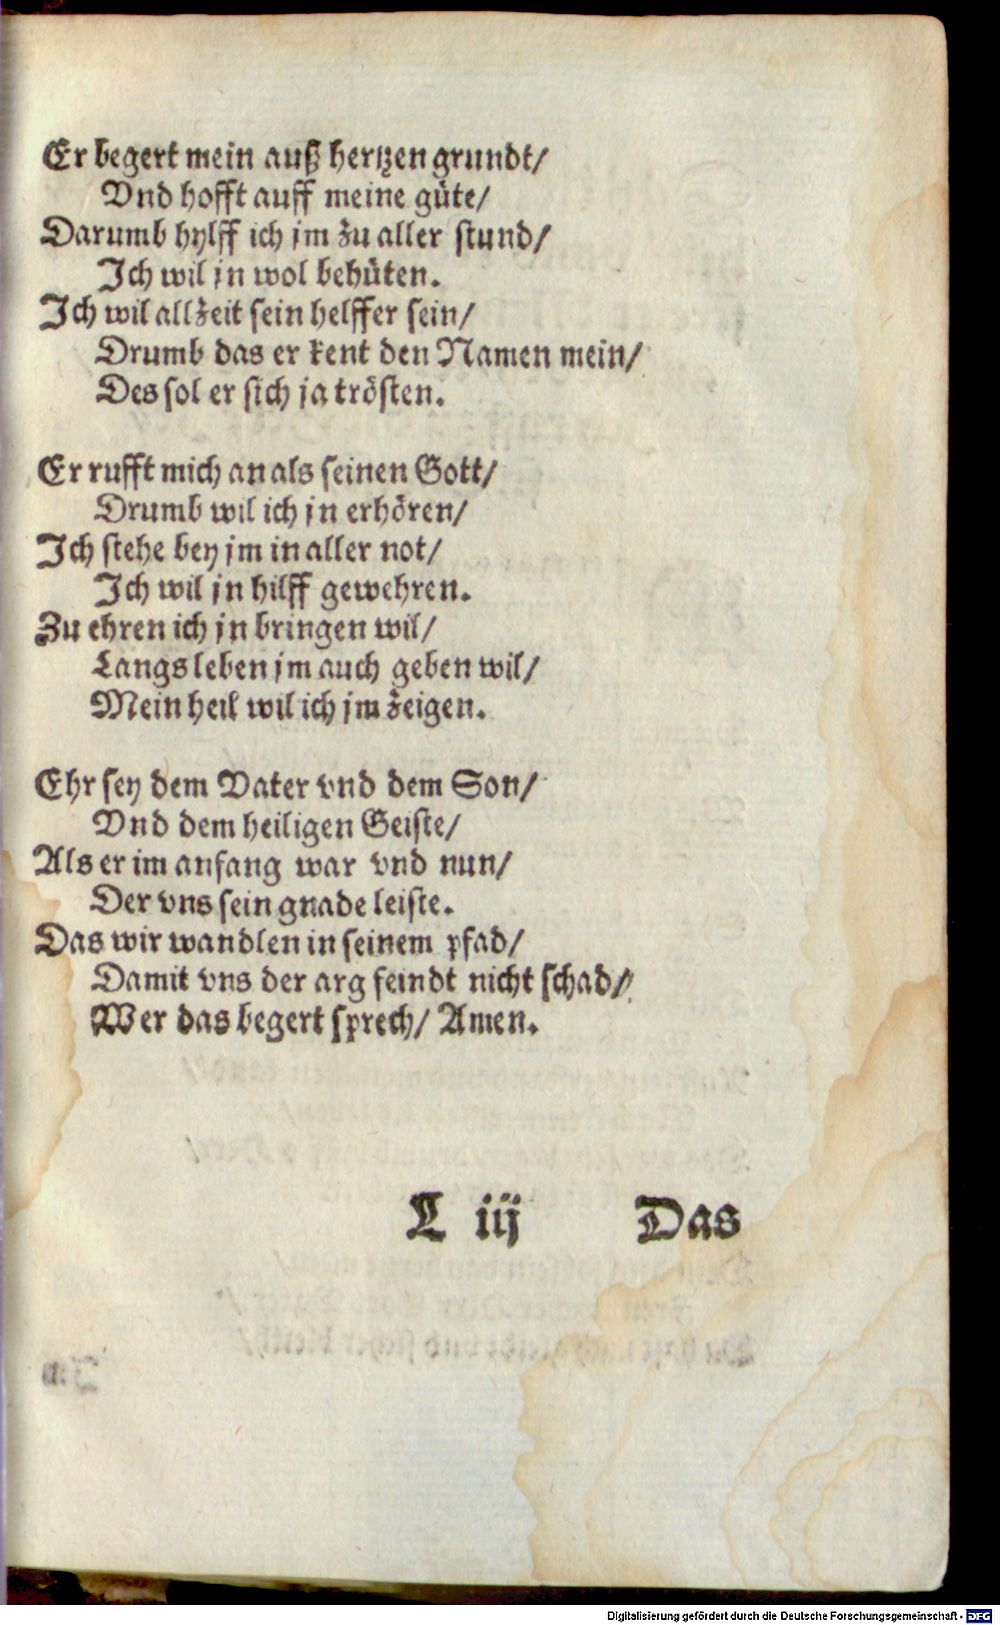 Er begert mein auß hertzen grundt/
Vnd hofft auff meine güte/
Darumb hylff ich jm zu aller stund/
Ich wil jn wol behüten.
Ich wil allzeit sein helffer sein/
Drumb das er kent den Namen mein/
Des sol er sich ja trösten.
Er rufft mich an als seinen Gott/
Drumb wil ich jn erhören/
Ich stehe bey jm in aller not/
Ich wil jn hilff gewehren.
Zu ehren ich jn bringen wil/
Langs leben jm auch geben wil/
Mein heil wil ich jm zeigen.
Ehr sey dem Vater vnd dem Son/
Vnd dem heiligen Geiste/
Als er im anfang war vnd nun/
Der vns sein gnade leiste.
Das wir wandlen in seinem pfad/
Damit vns der arg feindt nicht schad/
Wer das begert sprech/ Amen.
L iij Das
Digitalisierung gefördert durch die Deutsche Forschungsgemeinschaft - DFG